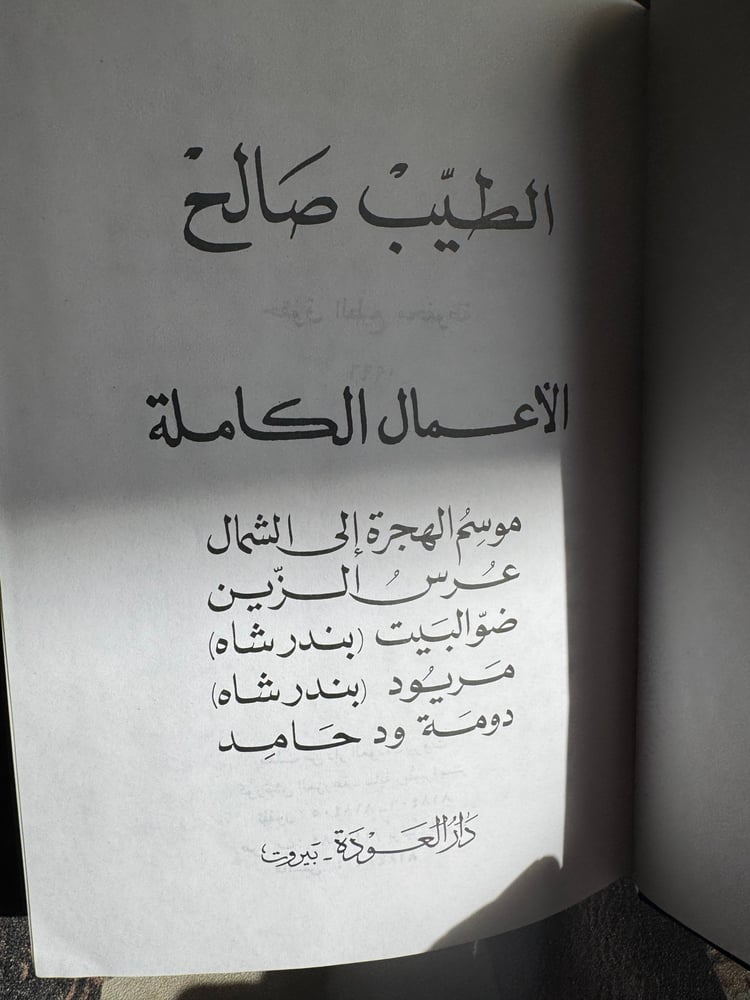 الطيّبْ صَالحْ
الأعمال الكاملة
موسِمُ الهجرة إلى الشمال
عُرسُ الزّين
ضوّ البَيت (بندر شاه)
مَريُود (بندر شاه)
دومَة ود حَامِد
دَارُ العَوْدَة - بَيروت